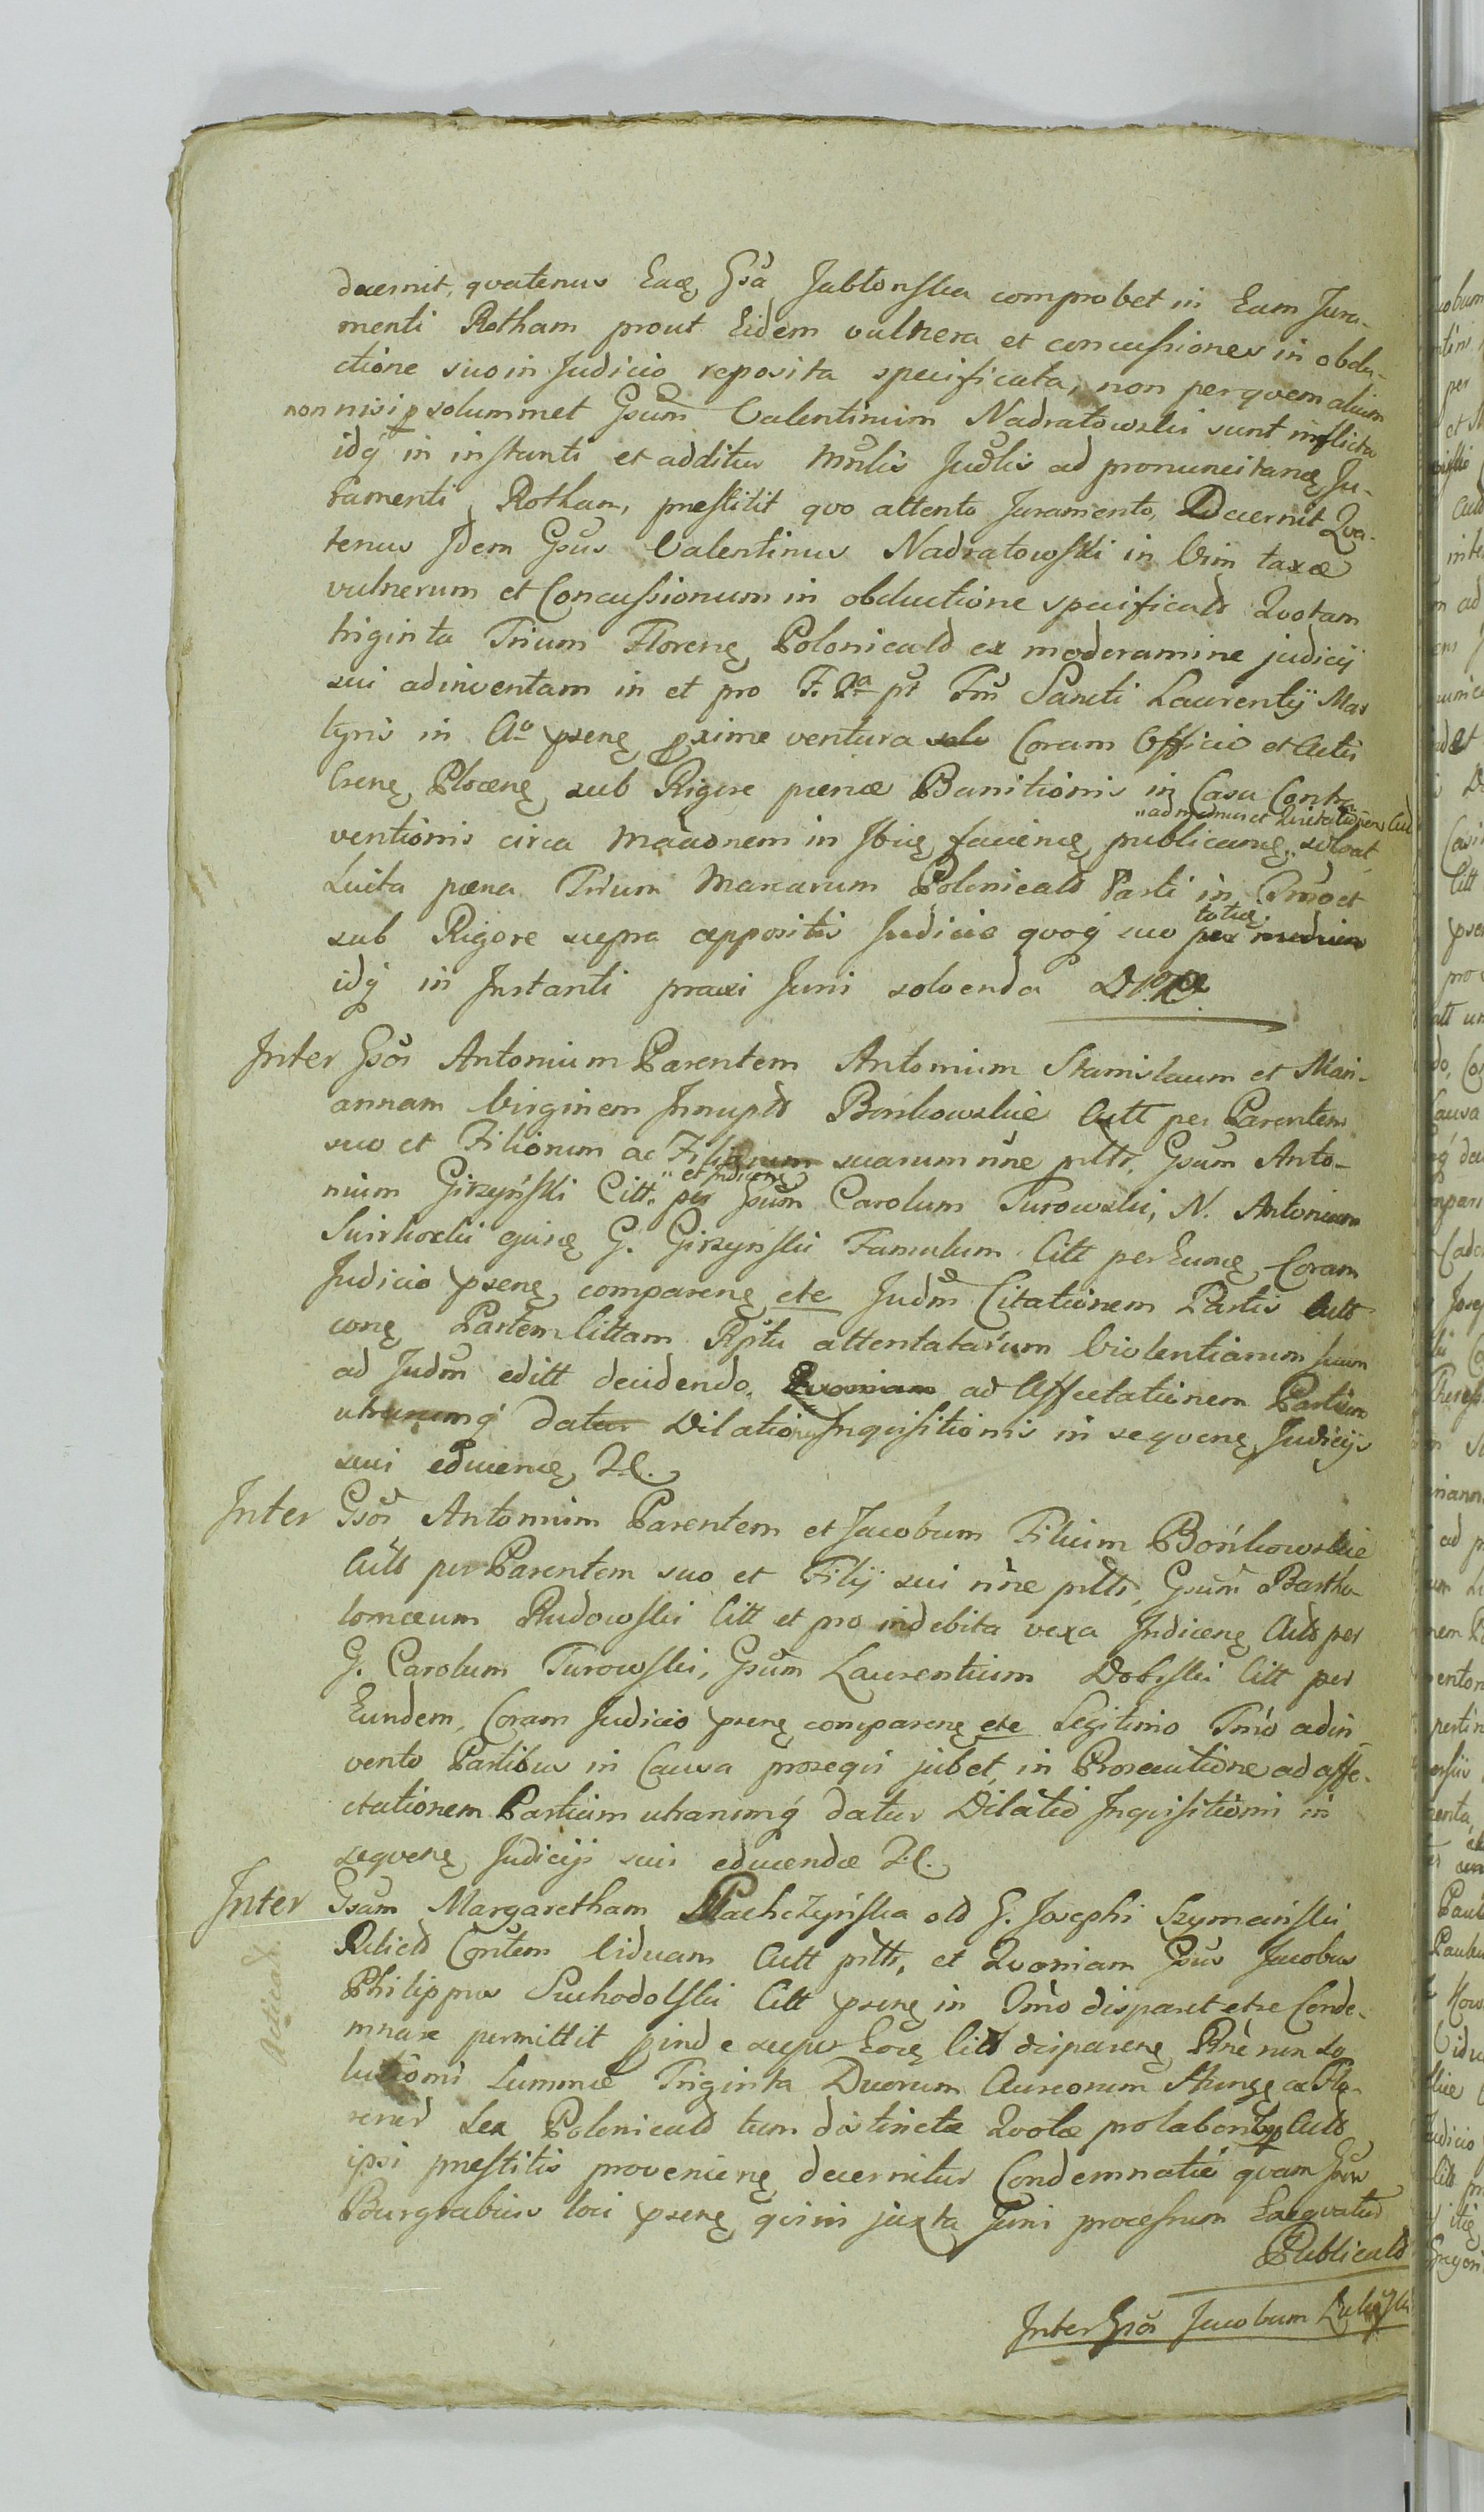 decernit, qvatenus Eaę Gsa Jabłonska comprobet in Eam Jura-
menti Rotham prout Eidem vulnera et concussiones in obdu-
ctione suo in Judicio reposita specificata, non per qvem alium
non nisi p solummet Gsum Valentinum Nadratowski sunt inflicta
idq in instanti et additur Mnlis Judlis ad pronuncitanę Ju-
ramenti Rotham, prestitit qvo attento Juramento, Decernit Qva-
tenus Idem Gsus Valentinus Nadratowski in Vim taxæ
vulnerum et Concussionum in obductione specificatt Qvotam
triginta Trium Florenę Polonicald ex moderamine judicij
sui adinventam in et pro F. 2a pt Fm Sancti Laurentij Mar
tyris in Ao psenę pxime ventura Coram Officio et Actis
Csenę Plocenę sub Rigore pœnæ Banitionis in Casu Contra
"ad manus et Qvietationem Act
ventionis circa Maaonem in Jbię faciencę publicanę solvat
Luita pœna Trium Marcarum Polonicald Parti in Tmo et
sub Rigore supra appositis Judicio qvoq suo
totię
idq in Instanti praxi Juris solvenda
Inter Gsos Antonium Parentem Antonium Stanislaum et Mari-
annam Virginem Innuptt Bońkowskie Actt per Parentem
suo et Filiorum ac Filiarum suarum nne ptts, Gsum Anto-
"et Judicenę
nium Girzyński Citt. per Gsum Carolum Turowski, N. Antonium
Swirkoski ejusę G. Girzynski Famulum Citt per Eumę Coram
Judicio psenę comparenę etc Judm Citationem Partis Actt
conę Partem Cittam Rptu attentatarum Violentiarum suum
ad Judm editt decidendo. Qvoniam ad Affectationem Partium
utrarumq datur Dilatio Inqvisitionis in seqvenę Judicijs
suis educenę H.
Inter Gsos Antonium Parentem et Jacobum Filium Bońkowskie
Actt per Parentem suo et Filij sui nne ptts, Gsum Bartho-
lomæum Rudowski Citt et pro indebita vexa Indicenę Actt per
G. Carolum Turowski, Gsum Laurentium Dobrski Citt per
Eundem, Coram Judicio psenę comparenę etc Legitimo Tmo adin
vento Partibus in Causa proseqvi jubet in Prosecutione ad affe-
ctationem Partium utrarumq datur Dilatio Inqvisitioni in
seqvenę Judicijs suis educendæ H.
Inter Gsam Margaretham Płachczyńska old G. Josephi Szymański
Relictt Contem Viduam Actt ptts, et Qvoniam Gsus Jacobus
Acticatt.
Philippus Suchodolski Citt psenę in Tmo disparet etre Conde-
mnare permittit pinde super Eoę Citt disparenę Rne non so
lutionis Summæ Triginta Duorum Aureorum Hungę ac Flo-
renod Sex Polonicald tum distinctæ Qvotæ pro laboribus Actt
ipsi prestitis provenienę decernitur Condemnatio qvam Gsus
Burgrabius loci psenę qvivis juxta Juris processum Exeqvatur
Publicatt
Inter Gsos Jacobum